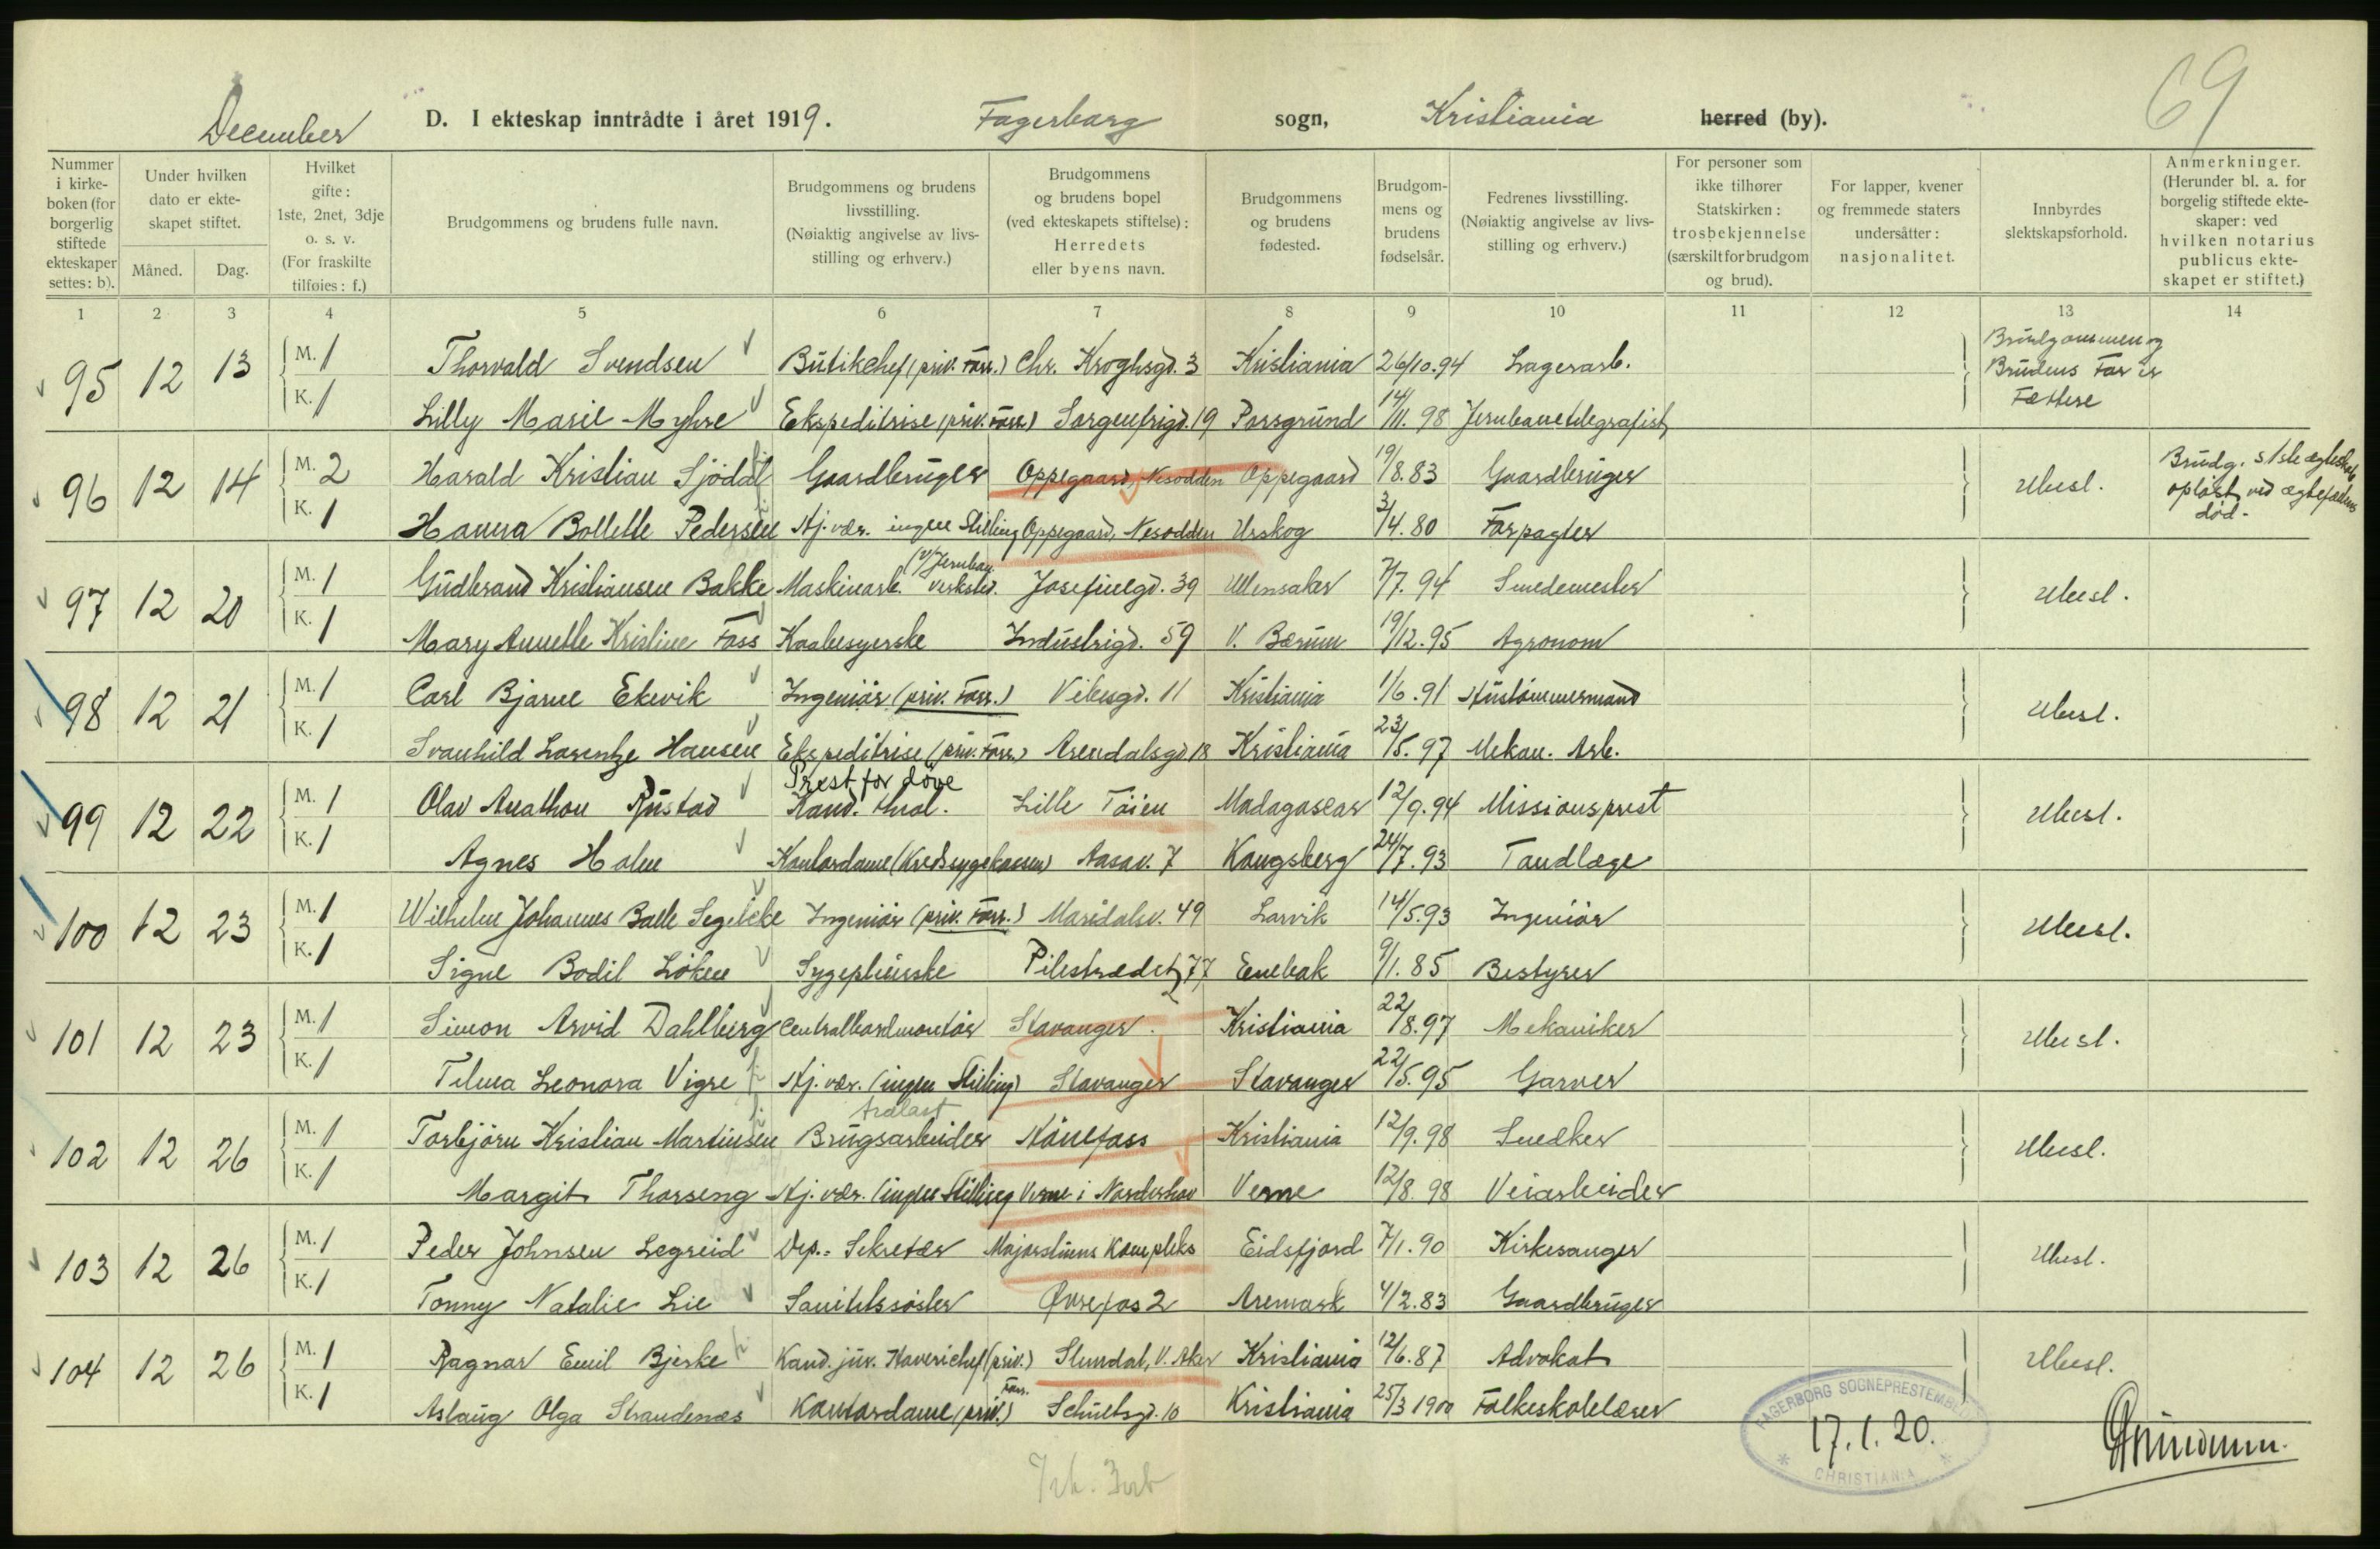 69
December D. I ekteskap inntrådte i året 1919. Fagerborg sogn, Kristiania herred (by).
Nummer i kirkeboken (for borgerlig stiftede ekteskaper settes: b).
Under hvilken dato er ekteskapet stiftet.
Måned. Dag.
Hvilket gifte: 1ste, 2net, 3dje o. s. v. (For fraskilte tilføies: f.)
Brudgommens og brudens fulle navn.
Brudgommens og brudens livsstilling. (Nøiaktig angivelse av livsstilling og erhverv.)
Brudgommens og brudens bopel (ved ekteskapets stiftelse): Herredets eller byens navn.
Brudgommens og brudens fødested.
Brudgommens og brudens fødselsår.
Fedrenes livsstilling. (Nøiaktig angivelse av livsstilling og erhverv.)
For personer som ikke tilhører Statskirken: trosbekjennelse (særskilt for brudgom og brud).
For lapper, kvener og fremmede staters undersåtter: nasjonalitet.
Innbyrdes slektskapsforhold.
Anmerkninger. (Herunder bl. a. for borgelig stiftede ekteskaper: ved hvilken notarius publicus ekteskapet er stiftet.)
1 2 3 4 5 6 7 8 9 10 11 12 13 14
95 12 13 M. 1 Thorvald Svendsen Butikchef (priv. Forr.) Chr. Kroghsgd. 3 Kristiania 26/10.94 Lagerarb. Brudgommen og Brudens Far er Fættere
K. 1 Lilly Marie Myhre Ekspeditrise (priv. Forr.) Sorgenfrigd. 19 Porsgrund 14/11. 98 Jernbanetelegrafist
96 12 14 M. 2 Harald Kristian Sjödal Gaardbruger Oppegaard, Nesodden Oppegaard 19/8.83 Gaardbruger Ubesl. Brudg. s 1ste ægteskab opløst ved ægtefælles død.
K. 1 Hanna Bollette Pedersen Hj. vær. ingen Stilling Oppegaard, Nesodden Urskog 3/4.80 Forpagter
97 12 20 M. 1 Gudbrand Kristiansen Bakke Maskinarb. (v/Jernban. verksted. Josefinegd. 39 Ullensaker 7/7.94 Smedemester Ubesl.
K. 1 Mary Annette Kristine Foss Kaabesyerske Industrigd. 59 V. Bærum 19/12.95 Agronom
98 12 21 M. 1 Carl Bjarne Ekevik Ingeniör (priv. Forr.) Vibesgd. 11 Kristiania 1/6.91 Hustömmermand Ubesl.
K. 1 Svanhild Lorentze Hansen Ekspeditrise (priv. Forr.) Arendalsgd. 18 Kristiania 23/5.97 Mekan. Arb.
99 12 22 M. 1 Olav Anathon Rustad Prest for döve Kand. theol. Lille Töien Madagascar 12/9.94 Missionsprest Ubesl.
K. 1 Agnes Holm Kontordame (Kredssygekassen) Aasav. 7 Kongsberg 24/7.93 Tandlæge
100 12 23 M. 1 Wilhelm Johannes Balle Segelcke Ingeniör (priv. Forr.) Maridalsv. 49 Larvik 14/5.93 Ingeniör Ubesl.
K. 1 Signe Bodil Löken Sygepleierske Pilestrædet 77 Enebak 9/1.85 Bestyrer
101 12 23 M. 1 Simon Arvid Dahlberg Centralbordmontör Stavanger Kristiania 22/8.97 Mekaniker Ubesl.
K. 1 Telma Leonora Vigre Hj. vær. (ingen Stilling) Stavanger Stavanger 22/5.95 Garver
102 12 26 M. 1 Torbjörn Kristian Martinsen Brugsarbeider Hönefoss Kristiania 12/9.98 Snedker Ubesl.
K. 1 Margit Thorseng Hj. vær. (ingen Stilling Verne i Norderhov Verne 12/8.98 Veiarbeider
103 12 26 M. 1 Peder Johnsen Legreid Dep.= Sekretær Majorstuens Kompleks Eidsfjord 7/1.90 Kirkesanger Ubesl.
K. 1 Tonny Natalie Lie Sanitetssöster Øvrefos 2 Aremark 4/2.83 Gaardbruger
104 12 26 M. 1 Ragnar Emil Bjerke Kand. jur. Haverichef (priv.) Slemdal, V. Aker Kristiania 12/6.87 Advokat Ubesl.
K. 1 Aslaug Olga Strandenæs Kontordame (priv. Forr.) Schultsgd. 10 Kristiania 25/3 1900 Folkeskolelærer
FAGERBORG SOGNEPRESTEMBEDE
17.1.20.
CHRISTIANIA